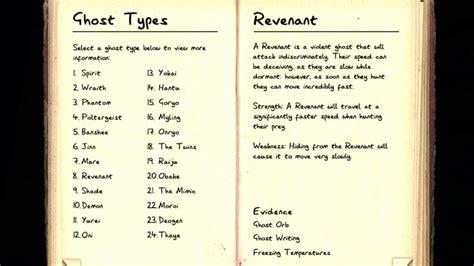 Ghost Types
Select a ghost type below to view more
information:
1. Spirit
2. Wraith
3. Phantom
4. Poltergeist
5. Banshee
6. Jinn
7. Mare
8. Revenant
9. Shade
10.Demon
11. Yurei
12.Oni
13. Yokai
14. Hantu
15. Goryo
16. Myling
17. Onryo
18. The Twins
19. Raiju
20.Obake
21. The Mimic
22. Moroi
23. Deogen
24. Thaye
Revenant
A Revenant is a violent ghost that will
attack indiscriminately. Their speed can
be deceiving, as they are slow while
dormant; however, as soon as they hunt
they can move incredibly fast.
Strength: A Revenant will travel at a
significantly faster speed when hunting
their prey.
Weakness: Hiding from the Revenant will
cause it to move very slowly.
Evidence
Ghost Orb
Ghost Writing
Freezing Temperatures